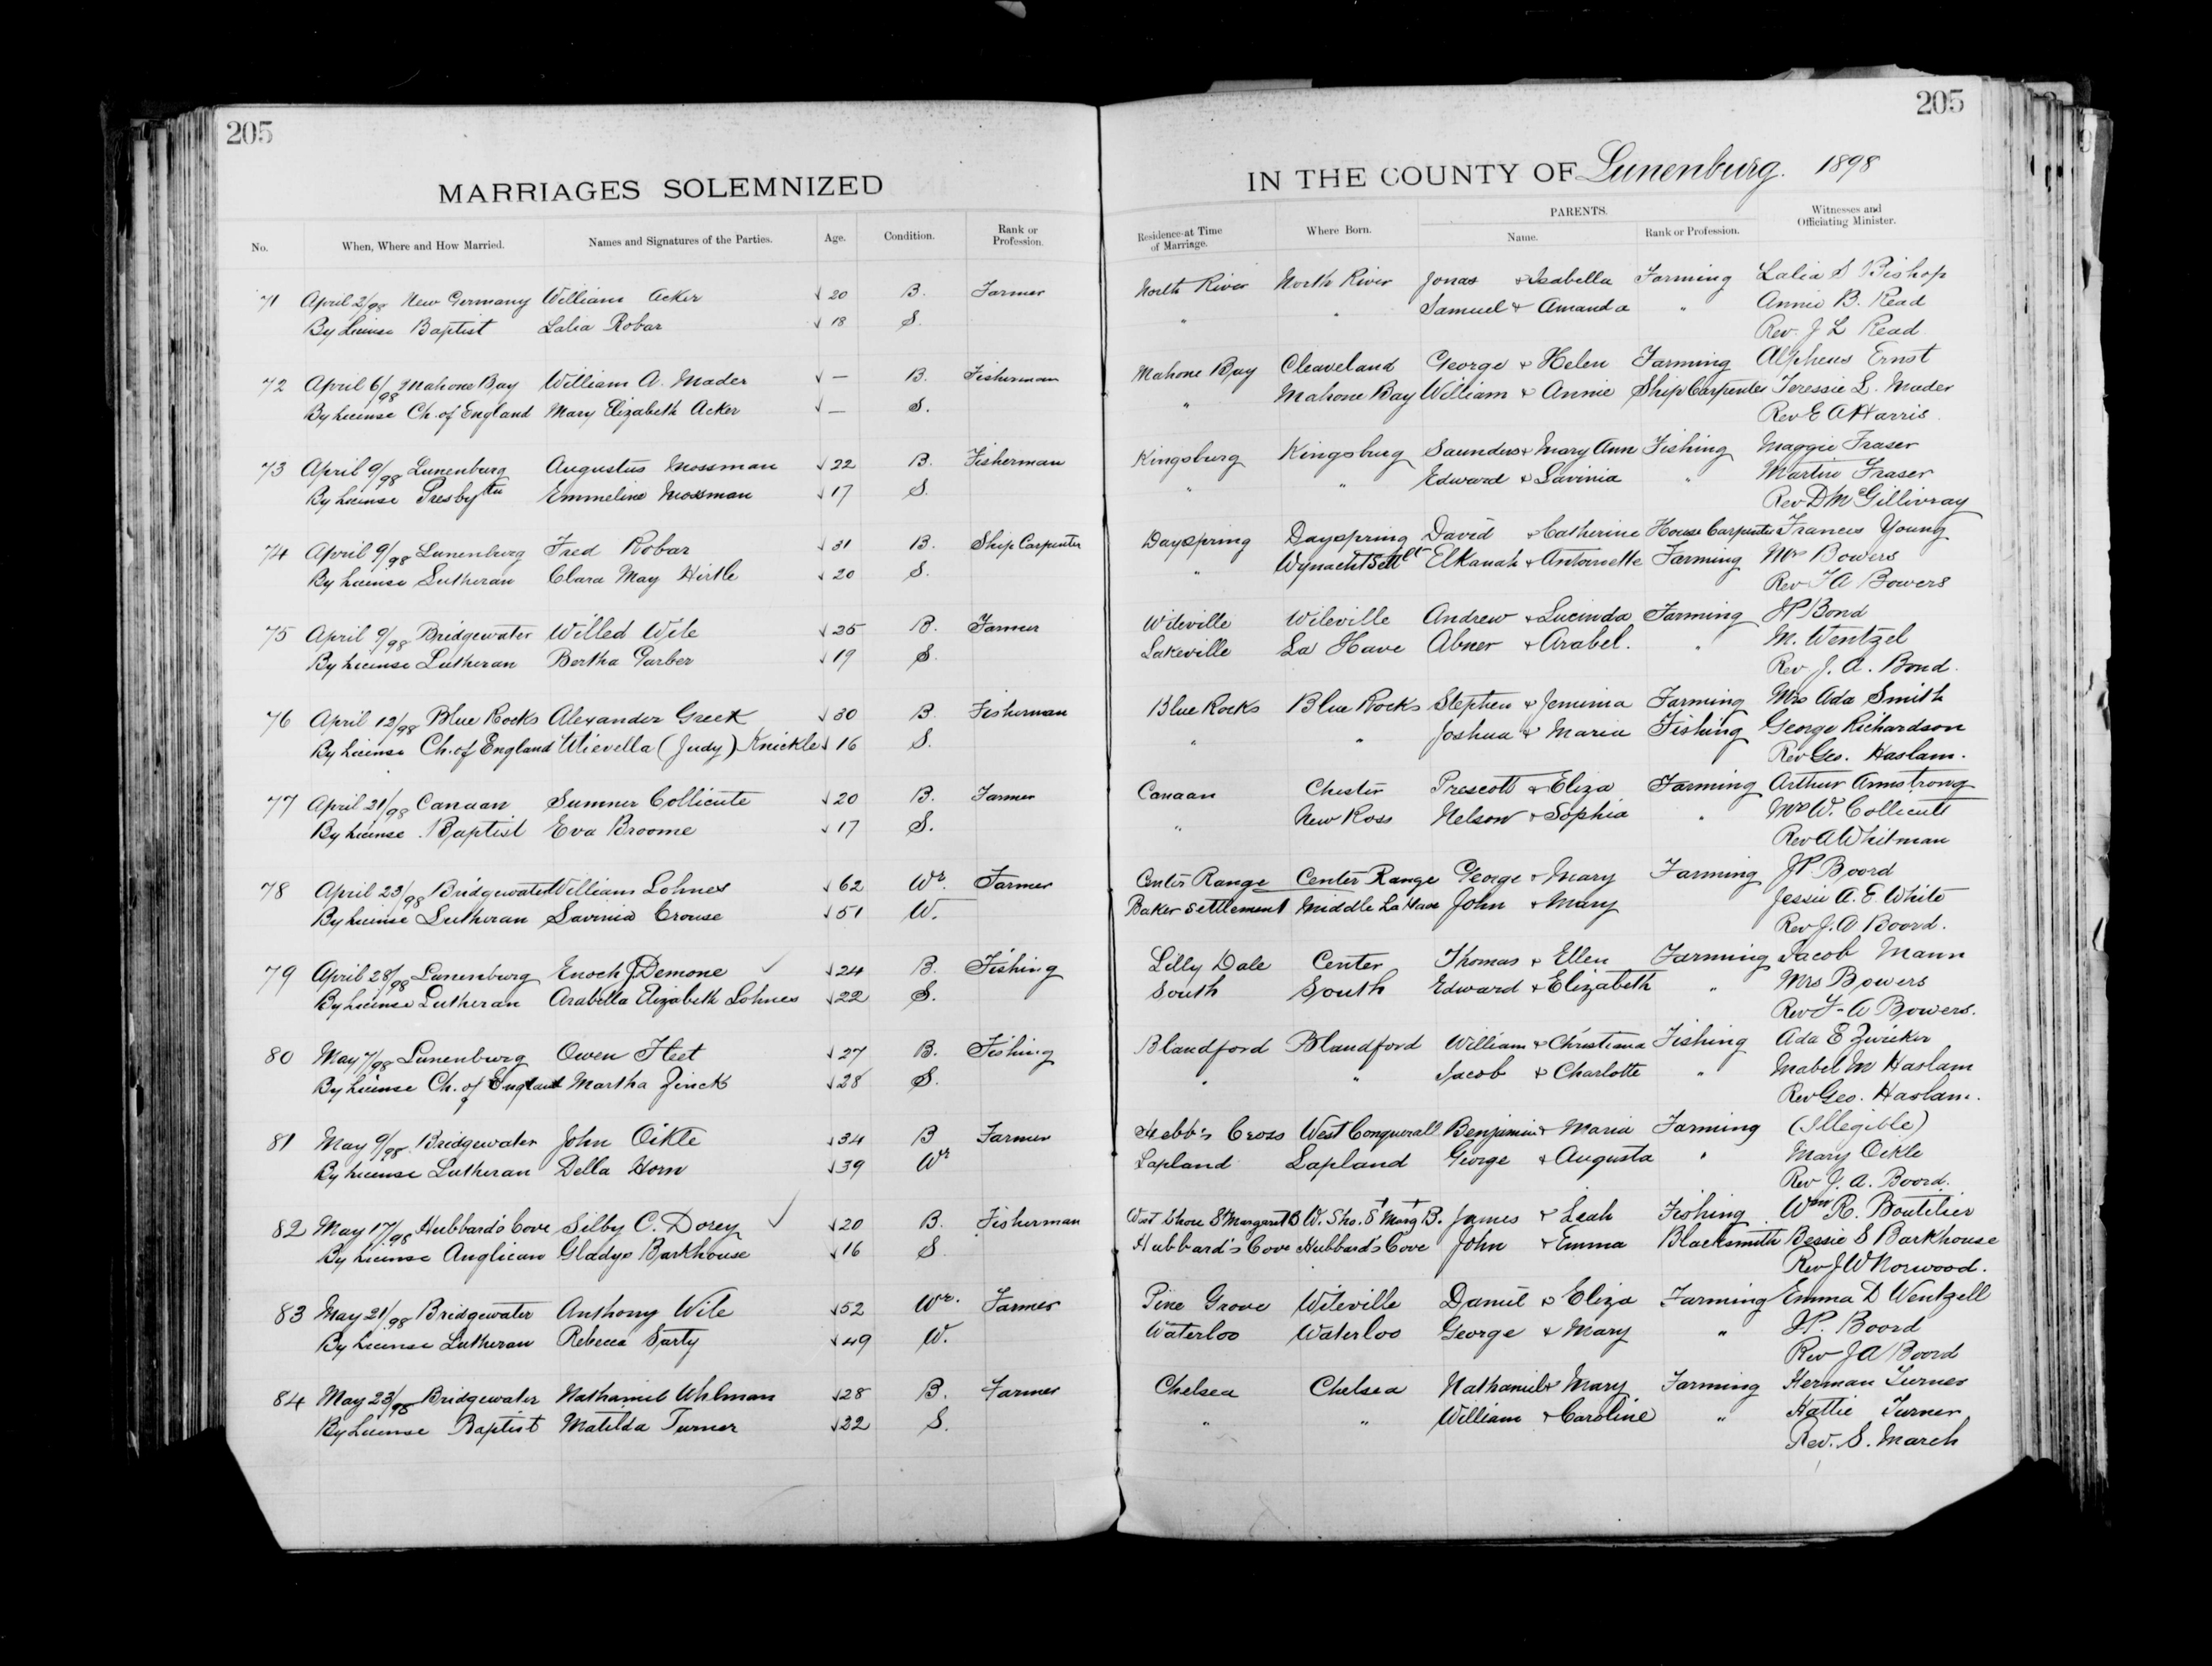 205
205
MARRIAGES SOLEMNIZED
IN THE COUNTY OF Lunenburg. 1898
No. When, Where and How Married. Names and Signatures of the Parties. Age. Condition. Rank or Profession. Residence at Time of Marriage. Where Born. PARENTS. Name. Rank or Profession. Witnesses and Officiating Minister.
71 April 2/98 New Germany William Acker 20 B. Farmer North River North River Jonas & Isabella Farming Lalia S Bishop
By License Baptist Lalia Robar 18 S. " " Samuel & Amanda " Annie B. Read
Rev. J L Read
72 April 6/98 Mahone Bay William A. Mader — B. Fisherman Mahone Bay Cleaveland George & Helen Farming Alpheus Ernst
By License Ch. of England Mary Elizabeth Acker — S. " Mahone Bay William & Annie Ship Carpenter Teressie L. Mader
Rev E A Harris
73 April 9/98 Lunenburg Augustus Mossman 22 B. Fisherman Kingsburg Kingsburg Saunders & Mary Ann Fishing Maggie Fraser
By License Presbytn Emmeline Mossman 17 S. " " Edward & Lavinia " Martin Fraser
Rev D McGillivray
74 April 9/98 Lunenburg Fred Robar 31 B. Ship Carpenter Dayspring Dayspring David & Catherine House Carpenter Frances Young
By License Lutheran Clara May Hirtle 20 S. " Wynacht Settlt Elkanah & Antoinette Farming Mrs Bowers
Rev F A Bowers
75 April 9/98 Bridgewater Willed Wile 25 B. Farmer Wileville Wileville Andrew & Lucinda Farming JP Bond
By License Lutheran Bertha Garber 19 S. Lakeville La Have Abner & Arabel. " M. Wentzel
Rev J. A. Bond.
76 April 12/98 Blue Rocks Alexander Greek 30 B. Fisherman Blue Rocks Blue Rocks Stephen & Jemima Farming Mrs Ada Smith
By License Ch. of England (Judy) Knickle 16 S. " " Joshua & Maria Fishing George Richardson
Rev Geo. Haslam.
77 April 21/98 Canaan Sumner Collicute 20 B. Farmer Canaan Chester Prescott & Eliza Farming Arthur Armstrong
By License Baptist Eva Broome 17 S. " New Ross Nelson & Sophia " Mrs W. Collicutt
Rev A Whitman
78 April 23/98 Bridgewater William Lohnes 62 Wr. Farmer Center Range Center Range George & Mary Farming JP Boord
By License Lutheran Lavinia Crouse 51 W. Baker Settlement Middle La Have John & Mary Jessie A. E. White
Rev J. A Boord.
79 April 28/98 Lunenburg Enoch J Demone 24 B. Fishing Lilly Dale Center Thomas & Ellen Farming Jacob Mann
By License Lutheran Arabella Elizabeth Lohnes 22 S. South South Edward & Elizabeth " Mrs Bowers
Rev F. A Bowers.
80 May 7/98 Lunenburg Owen Fleet 27 B. Fishing Blandford Blandford William & Christiana Fishing Ada E Zwicker
By License Ch. of England Martha Zinck 28 S. " " Jacob & Charlotte " Mabel M Haslam
Rev Geo. Haslam.
81 May 9/98 Bridgewater John Oikle 34 B Farmer Hebb's Cross West Conquerall Benjamin & Maria Farming (Illegible)
By License Lutheran Della Horn 39 Wr Lapland Lapland George & Augusta " Mary Oikle
Rev J. A. Boord.
82 May 17/98 Hubbard's Cove Silby C. Dorey 20 B. Fisherman West Shore St Margaret B W. Sho. St Marg B. James & Leah Fishing Wm R. Boutilier
By License Anglican Gladys Barkhouse 16 S Hubbard's Cove Hubbard's Cove John & Emma Blacksmith Bessie S Barkhouse
Rev J W Norwood.
83 May 21/98 Bridgewater Anthony Wile 52 Wr. Farmer Pine Grove Wileville Daniel & Eliza Farming Emma D Wentzell
By License Lutheran Rebecca Sarty 49 W. Waterloo Waterloo George & Mary " JP. Boord
Rev J A Boord
84 May 23/98 Bridgewater Nathaniel Uhlman 28 B. Farmer Chelsea Chelsea Nathaniel & Mary Farming Herman Turner
By License Baptist Matilda Turner 22 S. " " William & Caroline " Hattie Turner
Rev. S. March